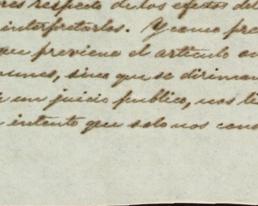 res respecto de los efectos del
interpretarlos. Y como pre
que previene el artículo
unes, sino que se diriman
un juicio publico, nos
intento que solo nos con